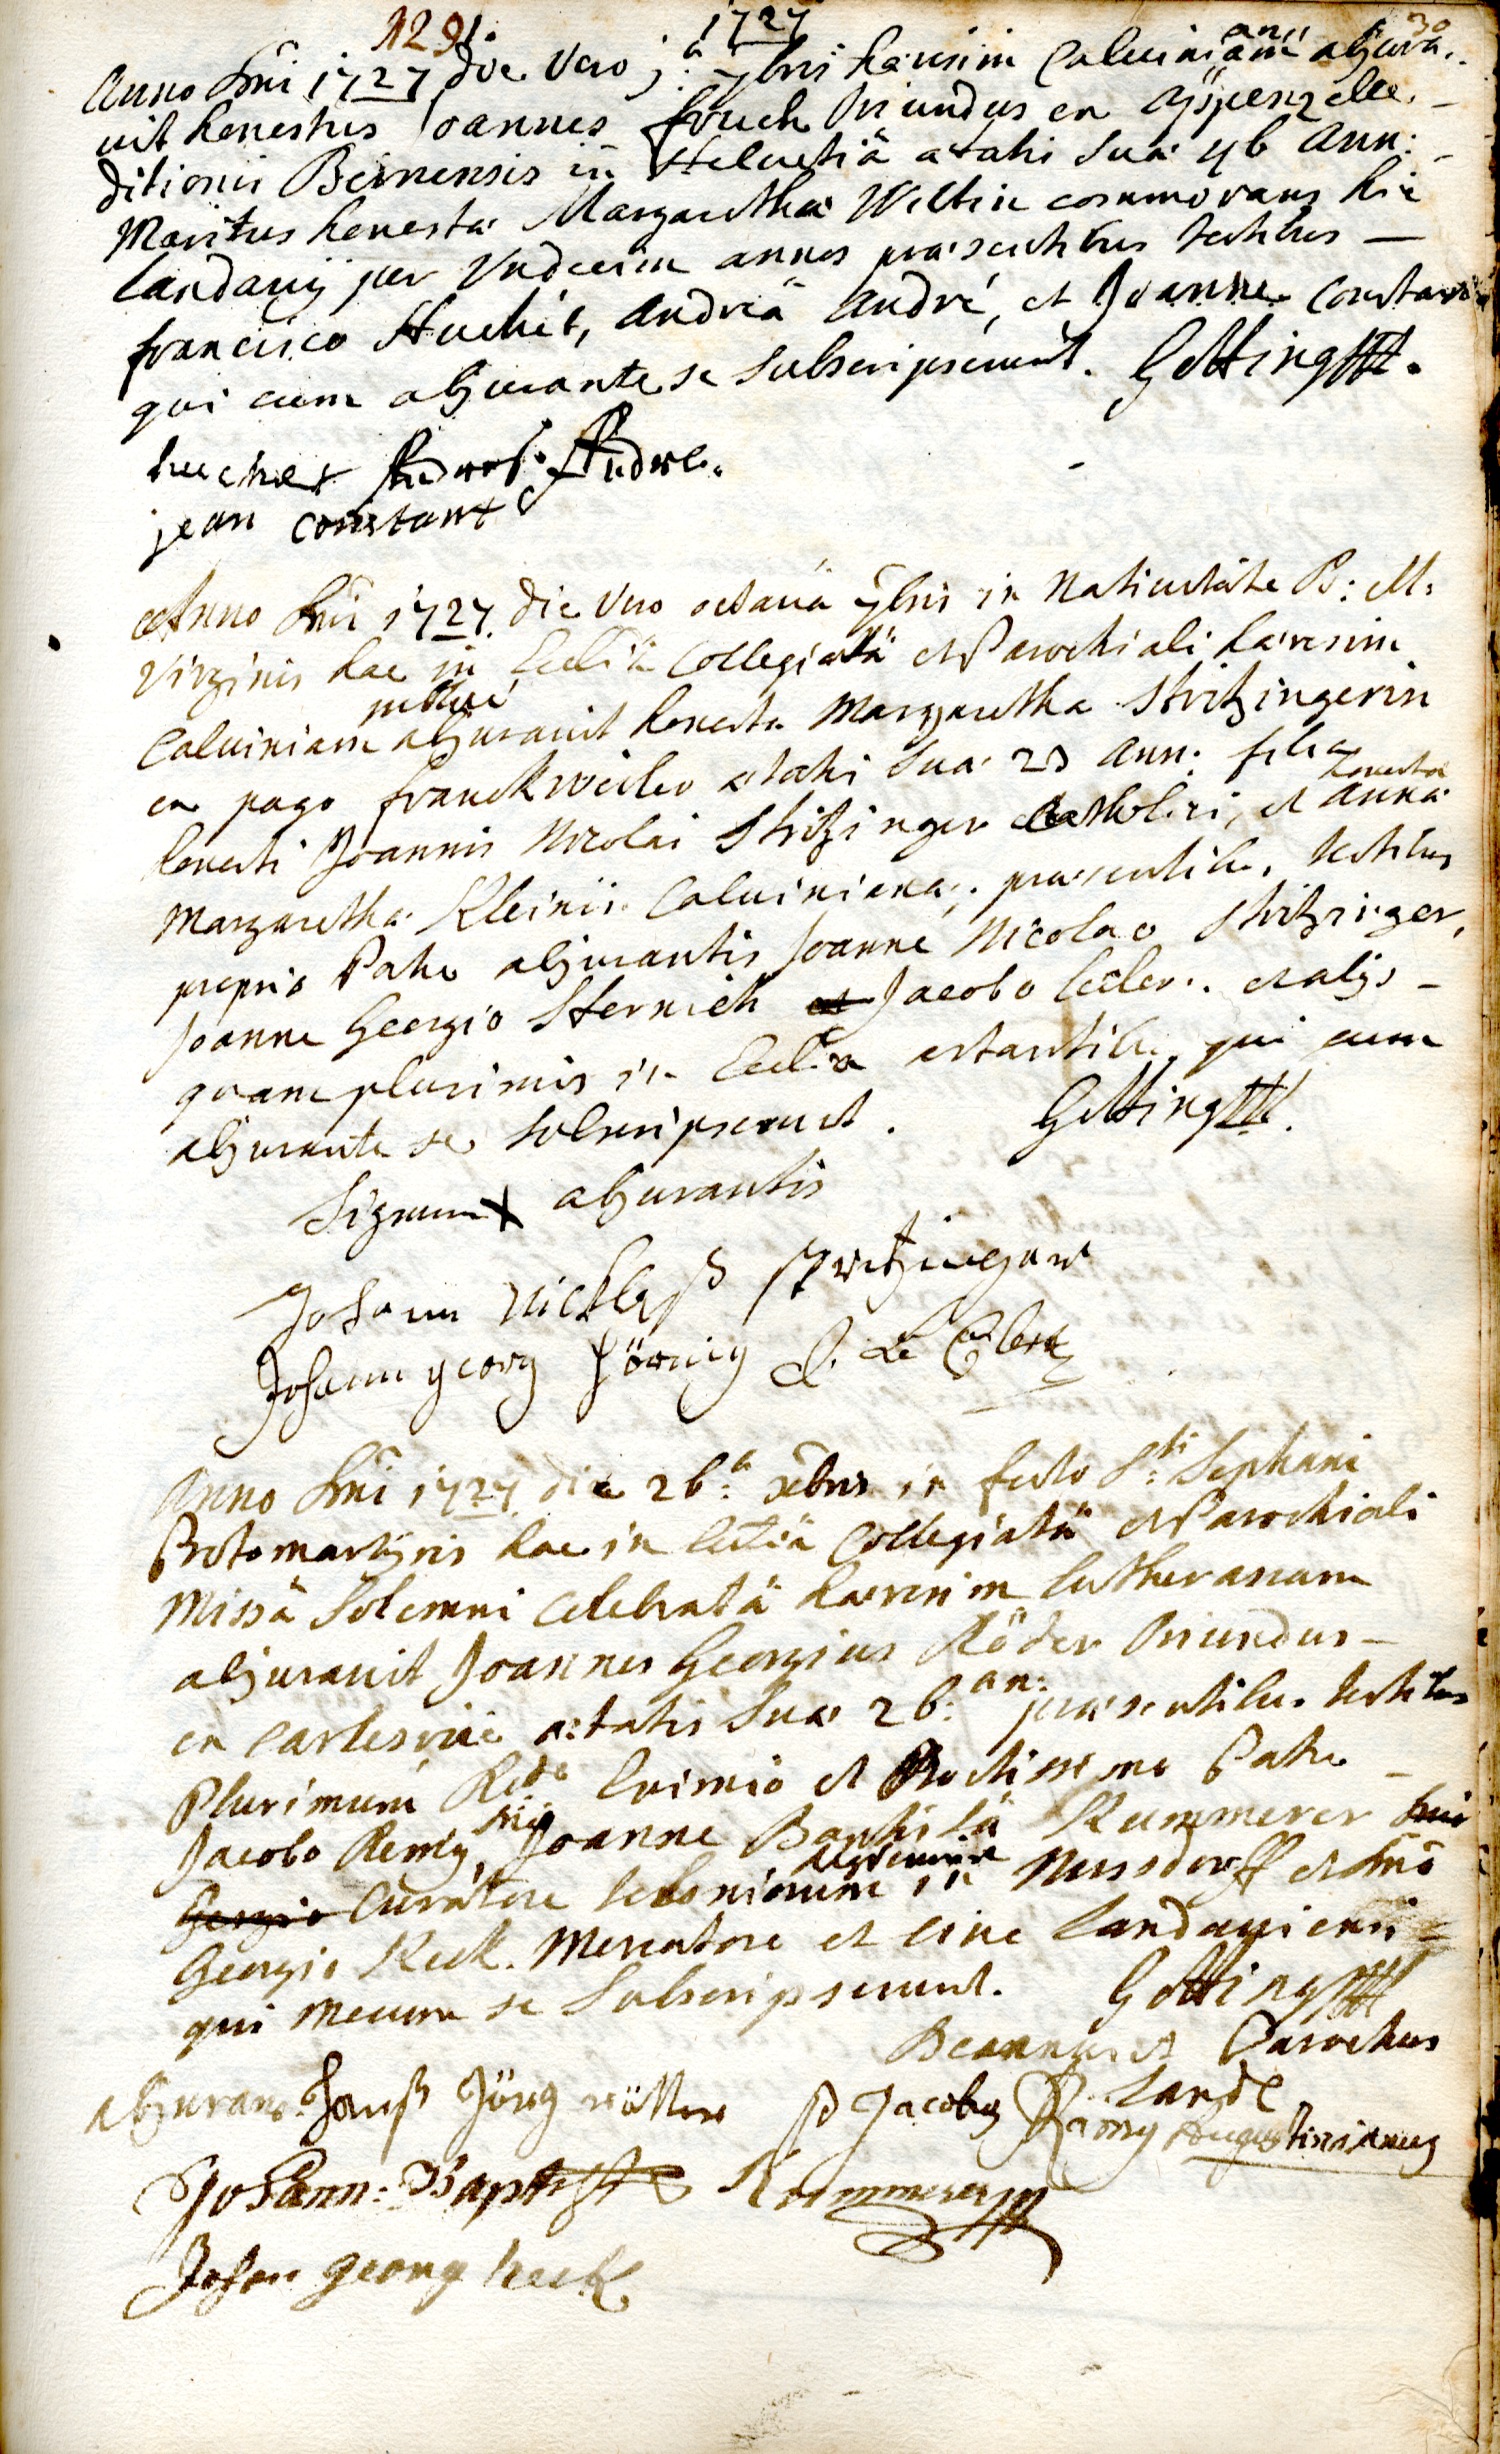 1291. 1727 30
Anno Dni 1727 die vero j.a 7bris hæresim Calvinianam abjura-
vit honestus Joannes oriundus ex
ditionis Bernensis in Helvetiâ ætatis suæ 46 Ann:
Maritus honestæ Margarethæ commorans hic
Landavij per Undecim annos præsentibus testibus —
francisco Huchet, Andreâ André, et Joanne Constant
qui cum abjurante se subscripserunt. Gotting
huchet Andre.
jean constant
Anno Dni 1727 die vero octavâ 7bris in Nativitate B: M:
Virginis hac in Ecclîâ Collegiatâ et Parochiali hæresim
Calvinianam publicè abjuravit honesta Margaretha Stritzingerin
ex pago franckweiler ætatis suæ 23 Ann: filia
honesti Joannis Nicolai Stritzinger Catholici, et honestæ Annæ
Margarethæ Calvinianæ; præsentib. testibus
proprio Patre abjurantis Joanne Nicolao Stritzinger,
Joanne Georgio Jacobo et alijs —
quam plurimis in Ecclîa astantib. qui cum
abjurante se subscripserunt. Gotting
Signum X abjurantis
Johann Nicklaß stritzinger
Johann georg hörnig
Anno Dni 1727 die 26.a xbris in festo S.ti Stephani
Protomartyris hac in Ecclîâ Collegiatâ et Parochiali
Missâ Solemni celebratâ hæresim Lutheranam
abjuravit Joannes Georgius Röder oriundus —
ex ætatis suæ 26. an: præsentibus testibus
Plurimum Rdo Eximio et Doctissimo Patre —
Jacobo Remy, Joanne Baptistâ Kummerer
Curatore in Nussdorff et Dno
Georgio Keck. Mercatore et cive Landaviensi
qui mecum se subscripserunt. Gotting
Decanus et Parochus
Land.
abjurans Hanß Jörg rötter P Jacobus Remy Augustinianus
Johann: Baptist Kummerer
Johan georg keck